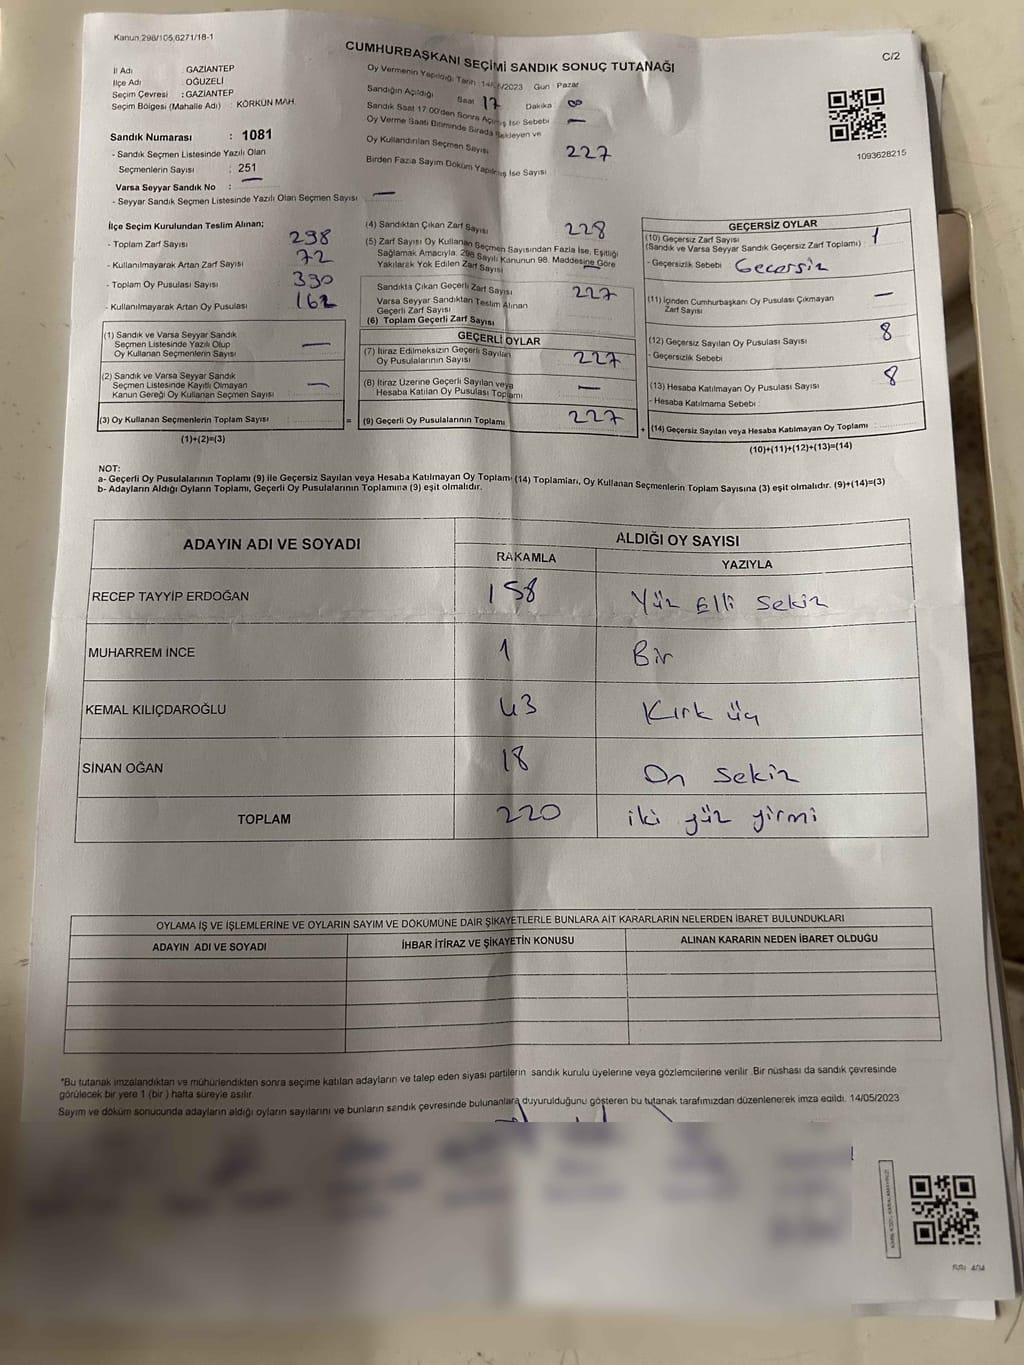 Kanun 298/105,6271/18-1
CUMHURBAŞKANI SEÇİMİ SANDIK SONUÇ TUTANAĞI
C/2
İl Adı : GAZİANTEP
İlçe Adı : OĞUZELİ
Seçim Çevresi : GAZİANTEP
Seçim Bölgesi (Mahalle Adı) : KÖRKÜN MAH.
Sandık Numarası : 1081
- Sandık Seçmen Listesinde Yazılı Olan
Seçmenlerin Sayısı : 251
Varsa Seyyar Sandık No : —
- Seyyar Sandık Seçmen Listesinde Yazılı Olan Seçmen Sayısı —
Oy Vermenin Yapıldığı Tarih : 14/5/2023 Gün : Pazar
Sandığın Açıldığı Saat 17 Dakika 00
Sandık Saat 17:00'den Sonra Açılmış İse Sebebi —
Oy Verme Saati Bitiminde Sırada Bekleyen ve
Oy Kullandırılan Seçmen Sayısı 227
Birden Fazla Sayım Döküm Yapılmış İse Sayısı
1093628215
İlçe Seçim Kurulundan Teslim Alınan;
- Toplam Zarf Sayısı 298
- Kullanılmayarak Artan Zarf Sayısı 72
- Toplam Oy Pusulası Sayısı 390
- Kullanılmayarak Artan Oy Pusulası 162
(1) Sandık ve Varsa Seyyar Sandık
Seçmen Listesinde Yazılı Olup
Oy Kullanan Seçmenlerin Sayısı —
(2) Sandık ve Varsa Seyyar Sandık
Seçmen Listesinde Kayıtlı Olmayan
Kanun Gereği Oy Kullanan Seçmen Sayısı —
(3) Oy Kullanan Seçmenlerin Toplam Sayısı
(1)+(2)=(3)
=
(4) Sandıktan Çıkan Zarf Sayısı 228
(5) Zarf Sayısı Oy Kullanan Seçmen Sayısından Fazla İse, Eşitliği
Sağlamak Amacıyla; 298 Sayılı Kanunun 98. Maddesine Göre
Yakılarak Yok Edilen Zarf Sayısı —
Sandıkta Çıkan Geçerli Zarf Sayısı 227
Varsa Seyyar Sandıktan Teslim Alınan
Geçerli Zarf Sayısı
(6) Toplam Geçerli Zarf Sayısı
GEÇERLİ OYLAR
(7) İtiraz Edilmeksizin Geçerli Sayılan
Oy Pusulalarının Sayısı 227
(8) İtiraz Üzerine Geçerli Sayılan veya
Hesaba Katılan Oy Pusulası Toplamı —
(9) Geçerli Oy Pusulalarının Toplamı 227
+
GEÇERSİZ OYLAR
(10) Geçersiz Zarf Sayısı
(Sandık ve Varsa Seyyar Sandık Geçersiz Zarf Toplamı) : 1
- Geçersizlik Sebebi Geçersiz
(11) İçinden Cumhurbaşkanı Oy Pusulası Çıkmayan
Zarf Sayısı —
(12) Geçersiz Sayılan Oy Pusulası Sayısı 8
- Geçersizlik Sebebi
(13) Hesaba Katılmayan Oy Pusulası Sayısı 8
- Hesaba Katılmama Sebebi :
(14) Geçersiz Sayılan veya Hesaba Katılmayan Oy Toplamı
(10)+(11)+(12)+(13)=(14)
NOT:
a- Geçerli Oy Pusulalarının Toplamı (9) ile Geçersiz Sayılan veya Hesaba Katılmayan Oy Toplamı (14) Toplamları, Oy Kullanan Seçmenlerin Toplam Sayısına (3) eşit olmalıdır. (9)+(14)=(3)
b- Adayların Aldığı Oyların Toplamı, Geçerli Oy Pusulalarının Toplamına (9) eşit olmalıdır.
ADAYIN ADI VE SOYADI ALDIĞI OY SAYISI
RAKAMLA YAZIYLA
RECEP TAYYİP ERDOĞAN 158 Yüz Elli Sekiz
MUHARREM İNCE 1 Bir
KEMAL KILIÇDAROĞLU 43 Kırk üç
SİNAN OĞAN 18 On Sekiz
TOPLAM 220 iki yüz yirmi
OYLAMA İŞ VE İŞLEMLERİNE VE OYLARIN SAYIM VE DÖKÜMÜNE DAİR ŞİKAYETLERLE BUNLARA AİT KARARLARIN NELERDEN İBARET BULUNDUKLARI
ADAYIN ADI VE SOYADI İHBAR İTİRAZ VE ŞİKAYETİN KONUSU ALINAN KARARIN NEDEN İBARET OLDUĞU
*Bu tutanak imzalandıktan ve mühürlendikten sonra seçime katılan adayların ve talep eden siyasi partilerin sandık kurulu üyelerine veya gözlemcilerine verilir .Bir nüshası da sandık çevresinde
görülecek bir yere 1 (bir ) hafta süreyle asılır.
Sayım ve döküm sonucunda adayların aldığı oyların sayılarını ve bunların sandık çevresinde bulunanlara duyurulduğunu gösteren bu tutanak tarafımızdan düzenlenerek imza edildi. 14/05/2023